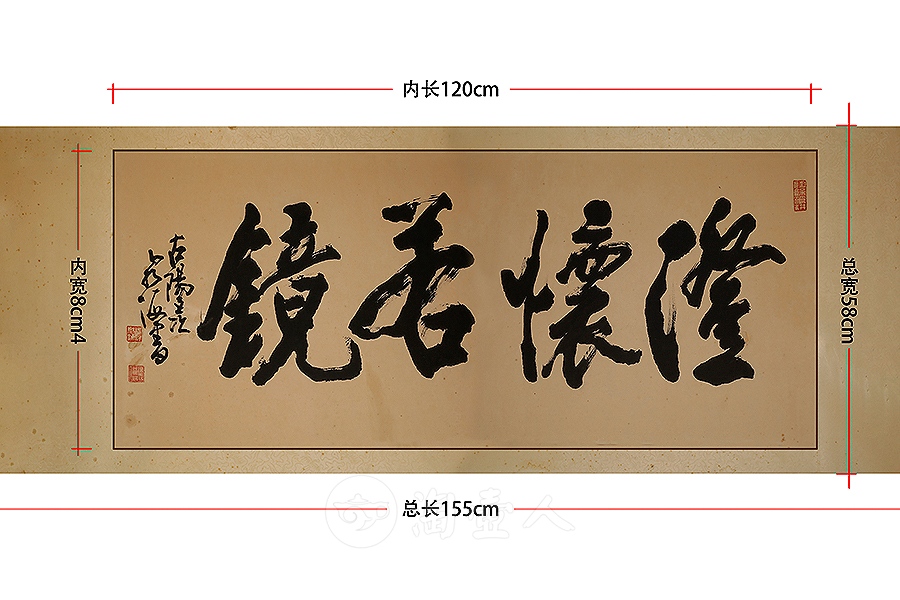 内长120cm
澄懷若鏡
内宽8cm4
总宽58cm
总长155cm
淘壶人